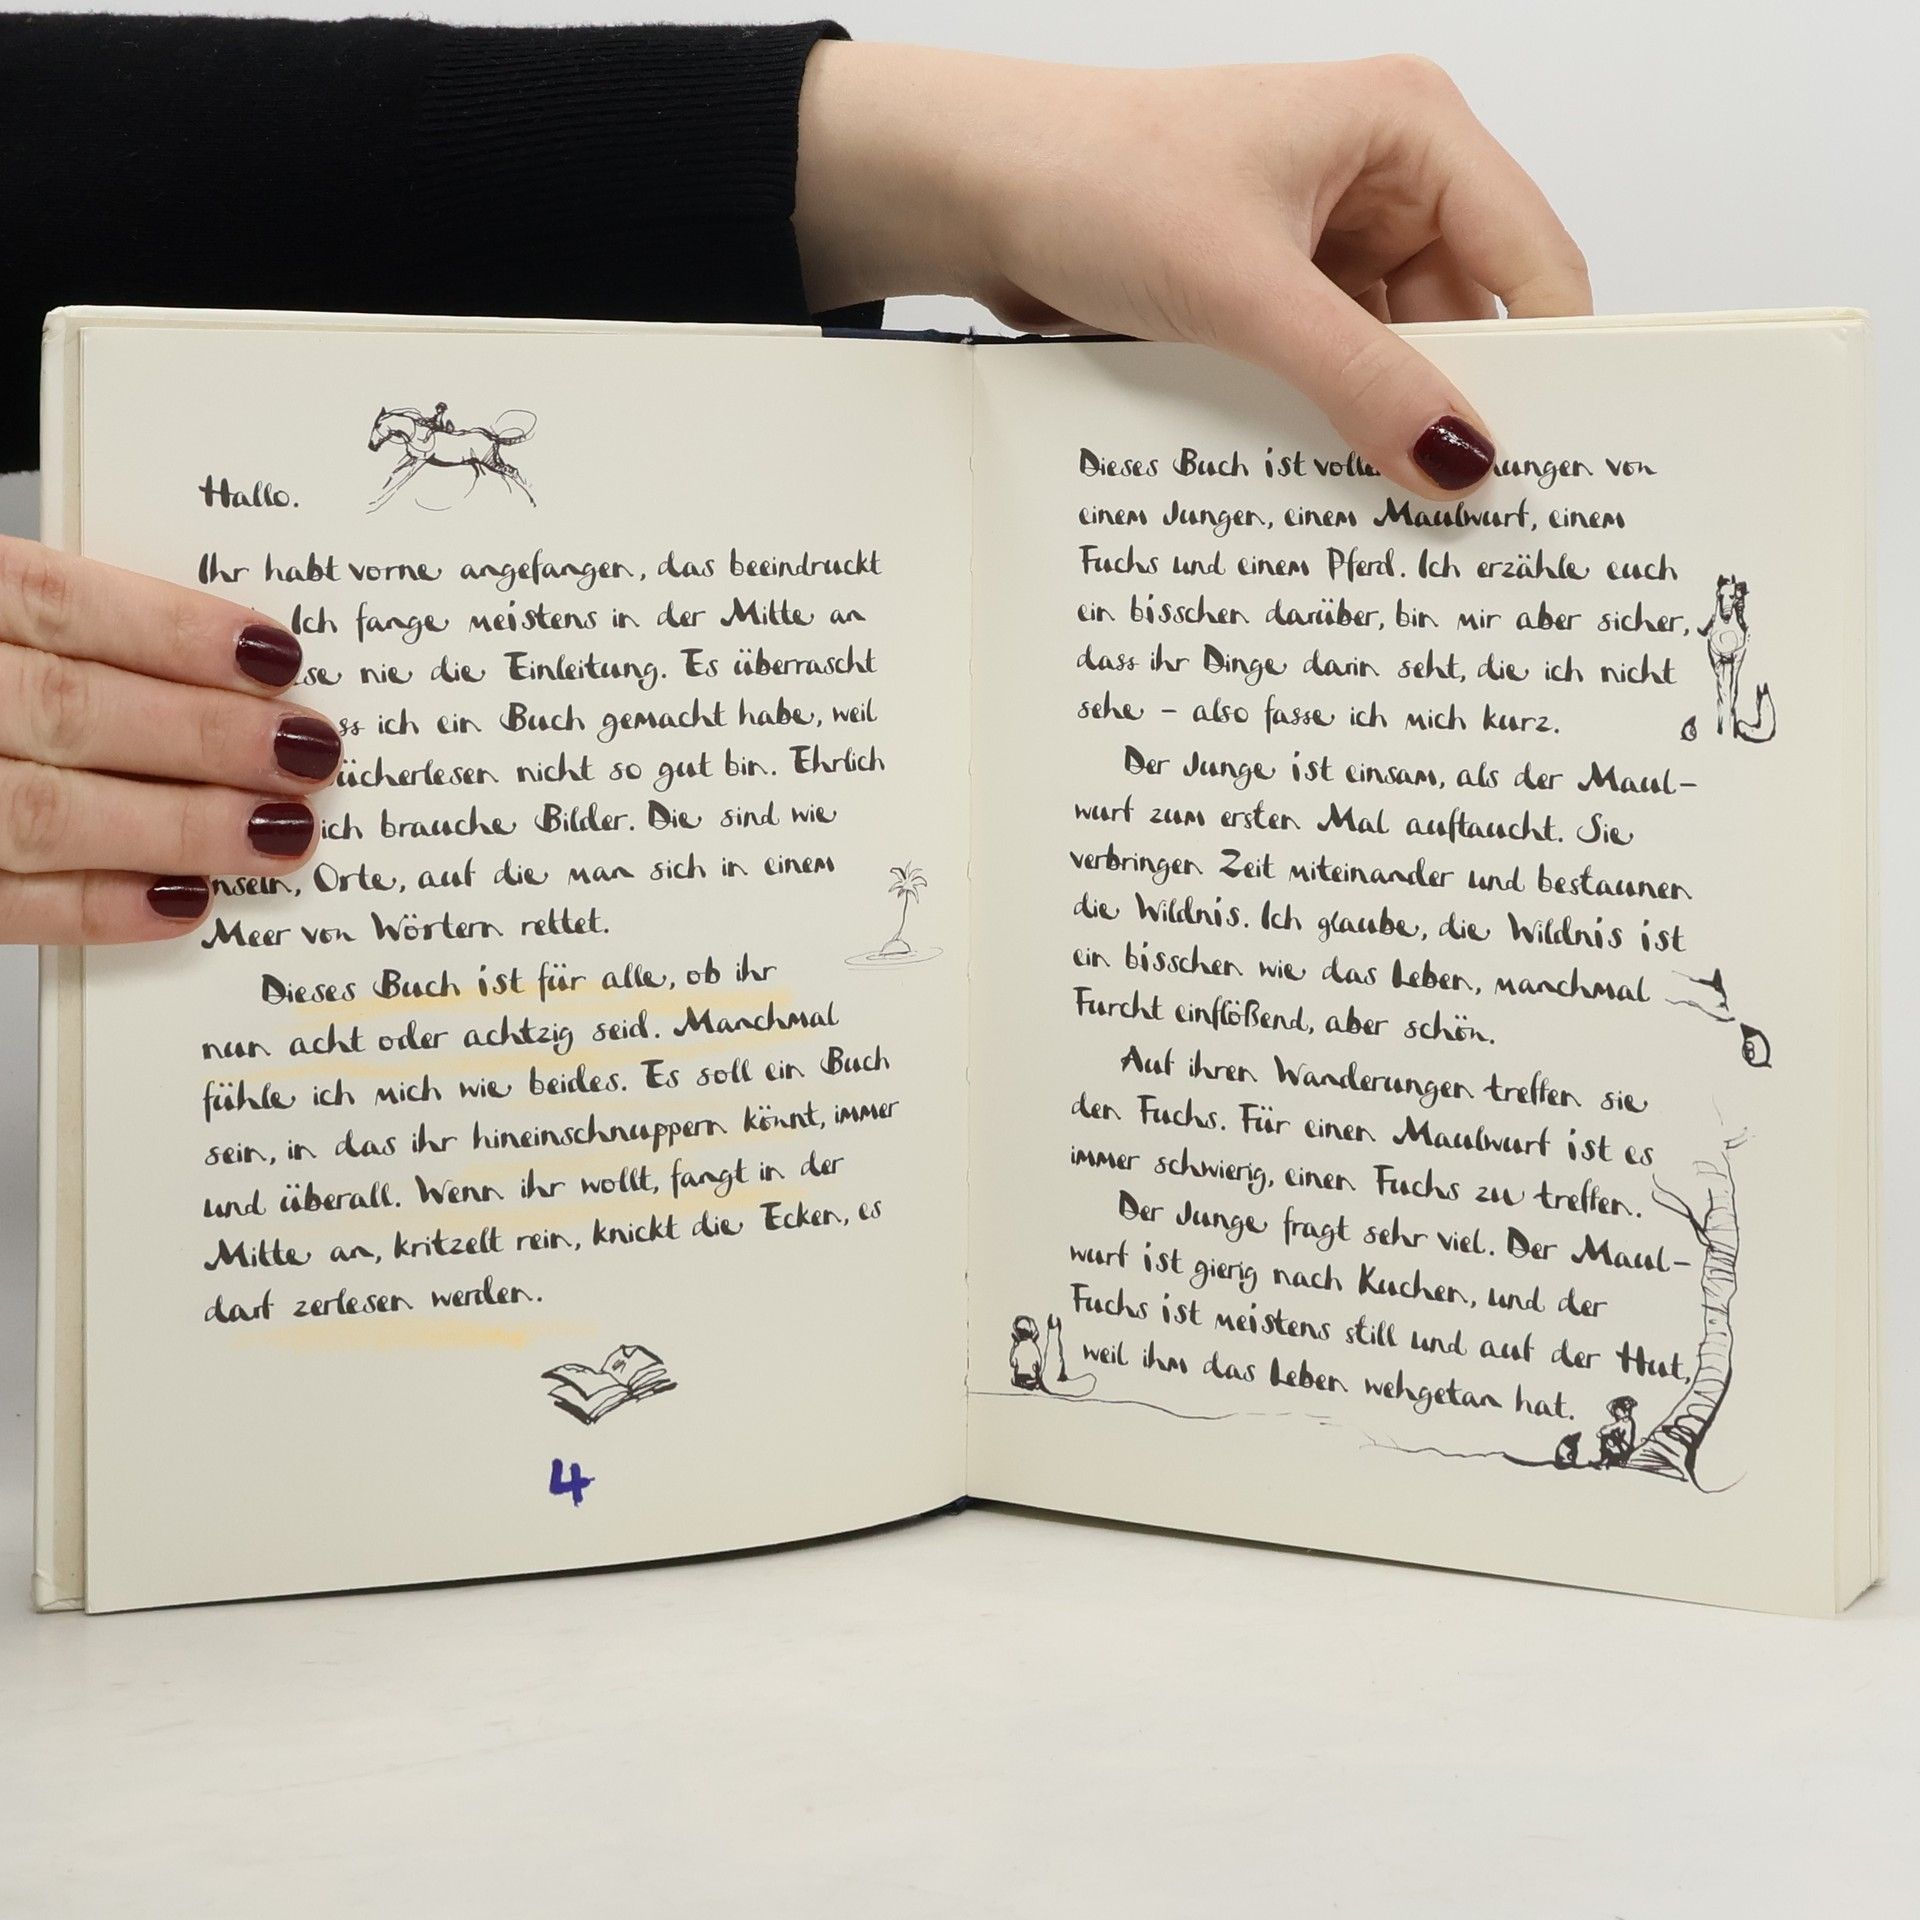 Hallo.
Ihr habt vorne angefangen, das beeindruckt
Ich fange meistens in der Mitte an
nie die Einleitung. Es überrascht
ich ein Buch gemacht habe, weil
nicht so gut bin. Ehrlich
ich brauche Bilder. Die sind wie
Orte, auf die man sich in einem
Meer von Wörtern rettet.
Dieses Buch ist für alle, ob ihr
nun acht oder achtzig seid. Manchmal
fühle ich mich wie beides. Es soll ein Buch
sein, in das ihr hineinschnuppern könnt, immer
und überall. Wenn ihr wollt, fangt in der
Mitte an, kritzelt rein, knickt die Ecken, es
darf zerlesen werden.
4
Dieses Buch ist von
einem Jungen, einem Maulwurf, einem
Fuchs und einem Pferd. Ich erzähle euch
ein bisschen darüber, bin mir aber sicher,
dass ihr Dinge darin seht, die ich nicht
sehe – also fasse ich mich kurz.
Der Junge ist einsam, als der Maul-
wurf zum ersten Mal auftaucht. Sie
verbringen Zeit miteinander und bestaunen
die Wildnis. Ich glaube, die Wildnis ist
ein bisschen wie das Leben, manchmal
Furcht einflößend, aber schön.
Auf ihren Wanderungen treffen sie
den Fuchs. Für einen Maulwurf ist es
immer schwierig, einen Fuchs zu treffen.
Der Junge fragt sehr viel. Der Maul-
wurf ist gierig nach Kuchen, und der
Fuchs ist meistens still und auf der Hut,
weil ihm das Leben wehgetan hat.